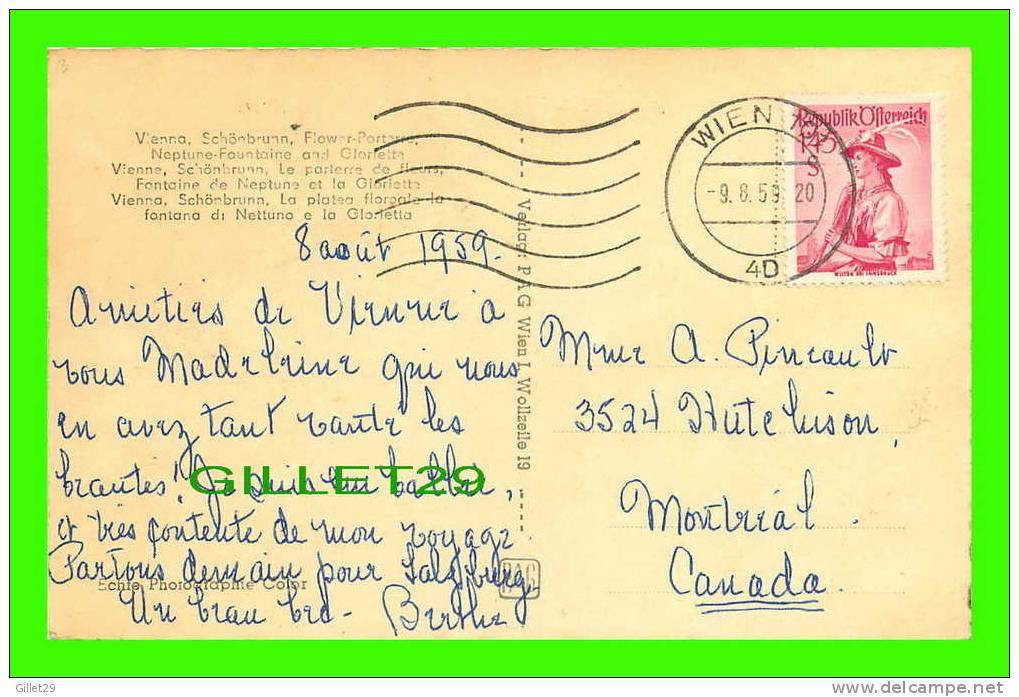 3
Vienna, Schönbrunn, Flower-Parterre,
Neptune-Fountaine and Gloriette
Vienne, Schönbrunn, Le parterre de fleurs,
Fontaine de Neptune et la Gloriette
Vienna, Schönbrunn, La platea floreale la
fontana di Nettuno e la Gloriette
8 août 1959.
Amitiés de Vienne à
vous Madeleine qui nous
en avez tant vanté les
beautés! Je suis en
et très contente de mon voyage
Partons demain pour Salzburg.
Un beau bec - Berthe
Echte Photographie Color
PAG
Verlag: PAG Wien I, Wollzeile 19
WIEN
-9.8.59 20
4D
Republik Österreich
1.45
S
WILTEN BEI INNSBRUCK
Mme A. Pineault
3524 Hutchison,
Montréal.
Canada.
GILLET29
Gillet29
www.delcampe.net